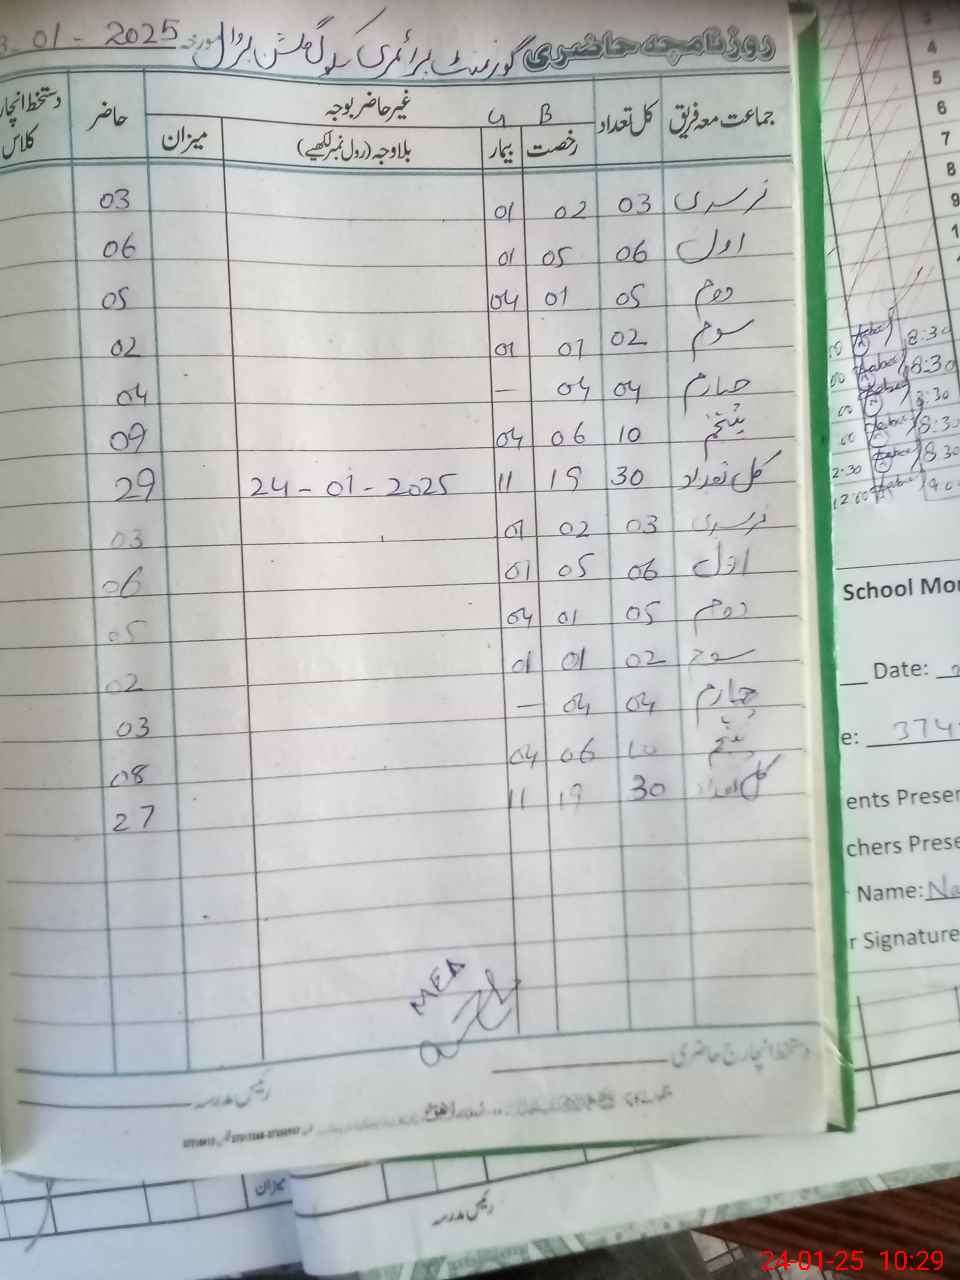 روزنامچہ حاضری گورنمنٹ پرائمری سکول گلشن مورخہ 3-01-2025
جماعت معہ فریق کل تعداد غیر حاضر بوجہ حاضر دستخط انچارج کلاس
B G
رخصت بیمار بلاوجہ (رول نمبر لکھیے) میزان
نرسری 03 02 01 03
اول 06 05 01 06
دوم 05 01 04 05
سوم 02 01 01 02
چہارم 04 04 — 04
پنجم 10 06 04 09
کل تعداد 30 19 11 24-01-2025 29
نرسری 03 02 01 03
اول 06 05 01 06
دوم 05 01 04 05
سوم 02 01 01 02
چہارم 04 04 — 03
پنجم 10 06 04 08
کل تعداد 30 19 11 27
MEA
دستخط انچارج حاضری
رئیس مدرسہ
میزان
رئیس مدرسہ
4
5
6
7
8
9
8:30
8:30
8:30
8:30
2:30 8:30
12:00 9:0
School Mo
Date:
e: 374
ents Presen
chers Prese
Name: Na
r Signature
24-01-25 10:29